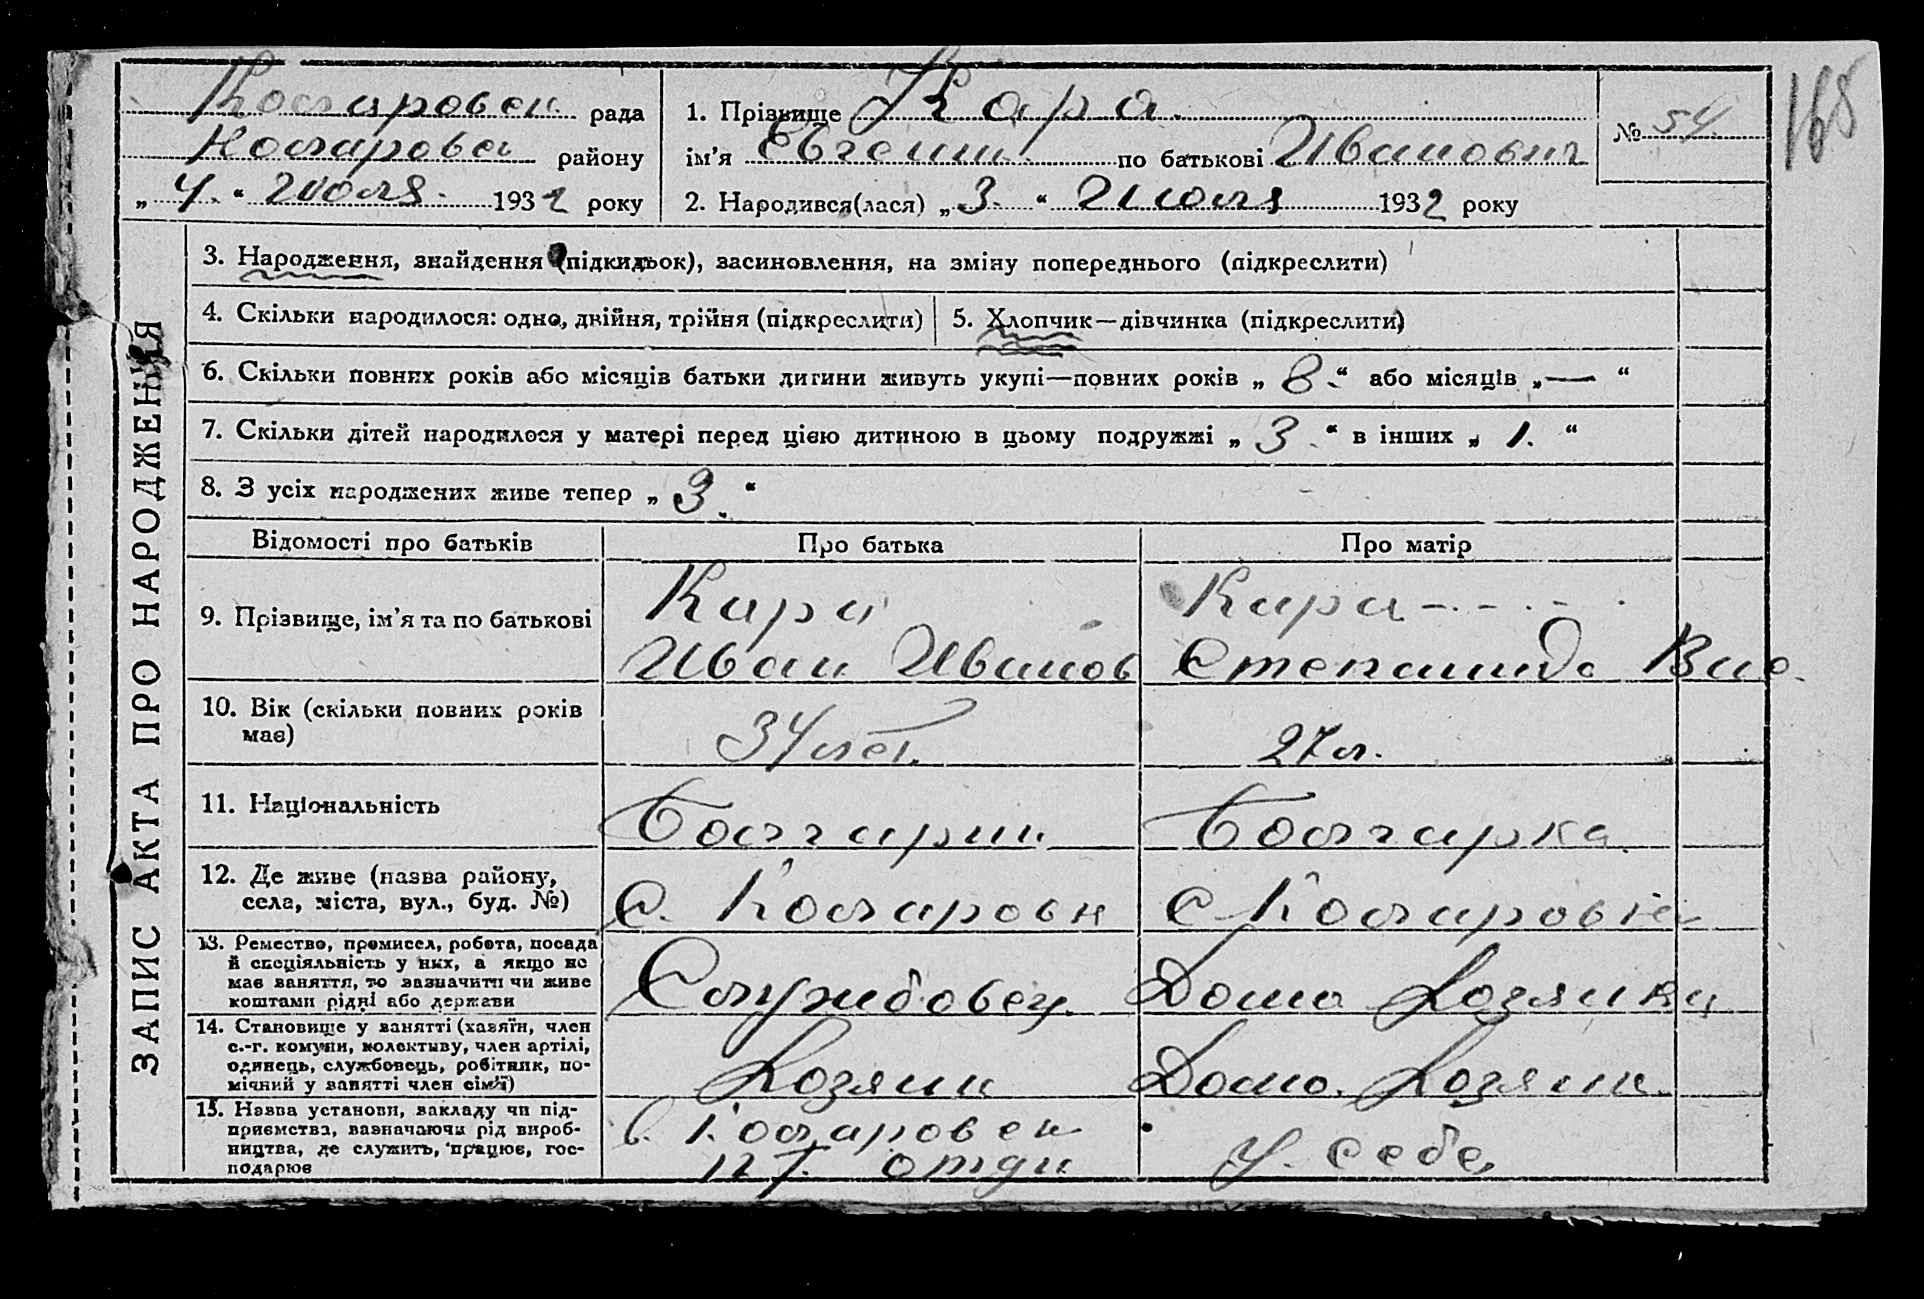 Коларовск рада
Коларовск району
„ 4. “ Июля 1932 року
1. Прізвище Кара
ім’я Евгений по батькові Иванович
№ 54
168
2. Народився(лася) „ 3. “ Июля 1932 року
ЗАПИС АКТА ПРО НАРОДЖЕННЯ
3. Народження, знайдення (підкидьок), засиновлення, на зміну попереднього (підкреслити)
4. Скільки народилося: одно, двійня, трійня (підкреслити)
5. Хлопчик—дівчинка (підкреслити)
6. Скільки повних років або місяців батьки дитини живуть укупі—повних років „ 8. “ або місяців „ — “
7. Скільки дітей народилося у матері перед цією дитиною в цьому подружжі „ 3. “ в інших „ 1. “
8. З усіх народжених живе тепер „ 3. “
Відомості про батьків
Про батька
Про матір
9. Прізвище, ім’я та по батькові
Кара
Иван Иванов
Кара
Степанида Вас.
10. Вік (скільки повних років
має)
34 лет.
27 л.
11. Національність
Болгарин
Болгарка.
12. Де живе (назва району,
села, міста, вул., буд. №)
с. Коларовк
с Коларовка
13. Ремество, промисел, робота, посада
й спеціяльність у них, а якщо не
має заняття, то зазначити чи живе
коштами рідні або держави
Службовец
Домо Хозяйка
14. Становище у занятті (хазяїн, член
с.-г. комуни, колективу, член артілі,
одинець, службовець, робітник, по-
мічний у занятті член сім’ї)
Хозяин
Домо. Хозяин
15. Назва установи, закладу чи під-
приємства, зазначаючи рід вироб-
ництва, де служить, працює, гос-
подарює
в. Коларовск
У себе